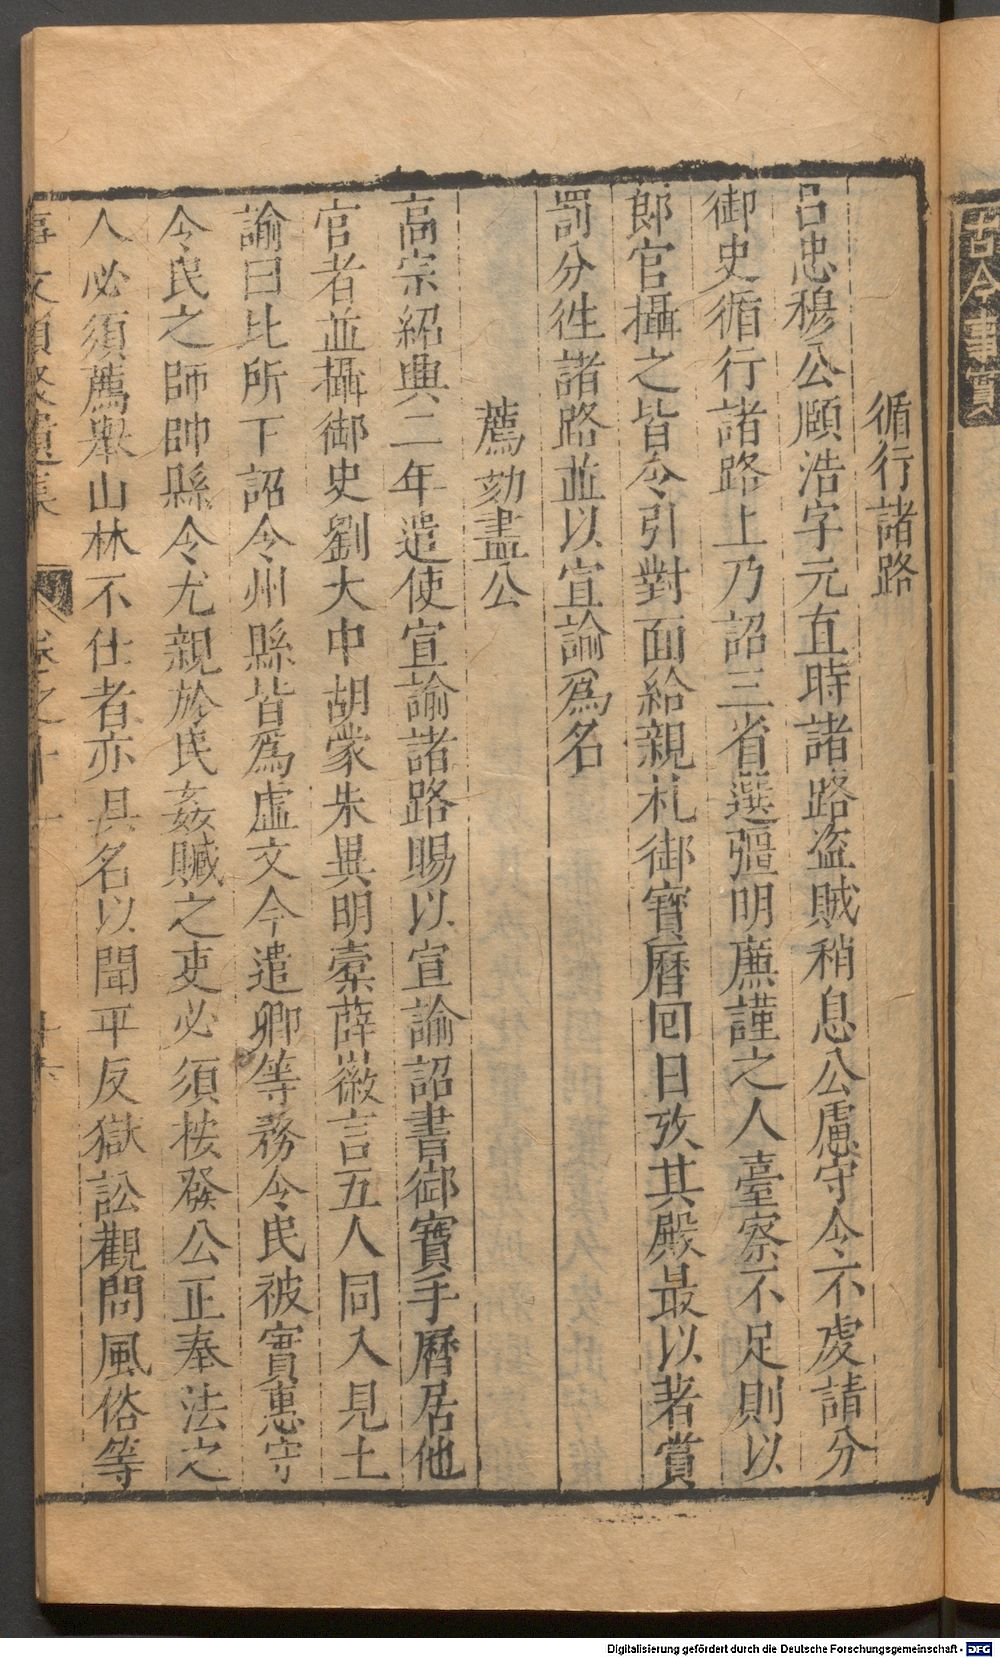 古今事實
循行諸路
呂忠穆公頤浩字元直時諸路盜賊稍息公慮守令不䖍請分
御史循行諸路上乃詔三省選彊明廉謹之人臺察不足則以
郎官攝之皆令引對面給親札御寶曆回日攷其殿最以著賞
罰分徃諸路並以宣諭爲名
薦劾盡公
高宗紹興二年遣使宣諭諸路賜以宣諭詔書御寶手曆居他
官者並攝御史劉大中胡蒙朱異明橐薛徽言五人同入見土
諭曰比所下詔令州縣皆爲虛文今遣卿等務令民被實惠守
令民之師帥縣令尤親於民姦贓之吏必須按發公正奉法之
人必須薦舉山林不仕者亦具名以聞平反獄訟觀問風俗等
事文類聚遺集 卷之十
Digitalisierung gefördert durch die Deutsche Forschungsgemeinschaft - DFG